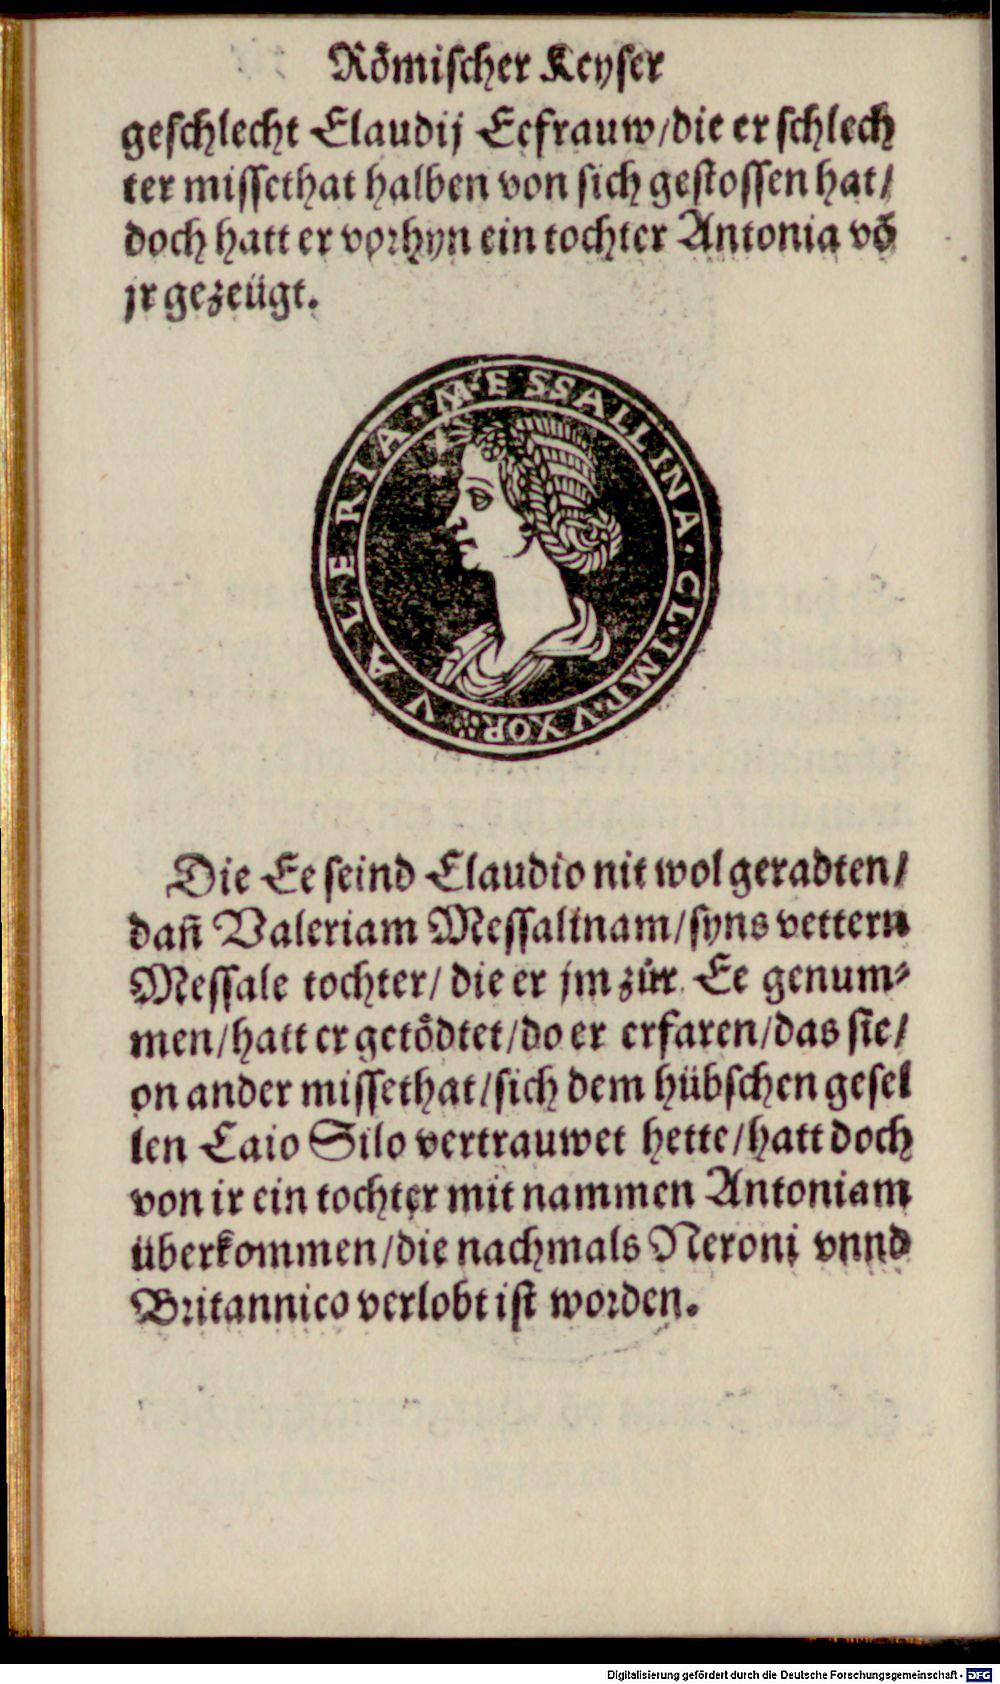 Römischer Keyser
geschlecht Claudij Eefrauw/die er schlech
ter missethat halben von sich gestossen hat/
doch hatt er vorhyn ein tochter Antonia vō
jr gezeügt.
VALERIA · MESSALLINA · CL · IMP · VXOR
Die Ee seind Claudio nit wol geradten/
dañ Valeriam Messalinam/syns vettern
Messale tochter/ die er jm zůr Ee genum⸗
men/hatt er getödtet/do er erfaren/das sie/
on ander missethat/sich dem hübschen gesel
len Caio Silo vertrauwet hette/hatt doch
von ir ein tochter mit nammen Antoniam
überkommen/die nachmals Neroni vnnd
Britannico verlobt ist worden.
Digitalisierung gefördert durch die Deutsche Forschungsgemeinschaft - DFG